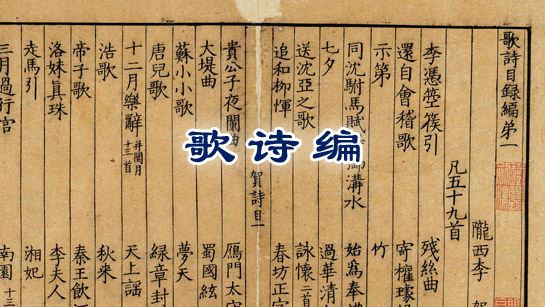 歌诗编
歌詩目録編第一
隴西李
凡五十九首
李憑箜篌引 殘絲曲
還自會稽歌 寄權璩
示第 竹
同沈駙馬賦 溝水 始為奉
七夕 過華清
送沈亞之歌 詠懷二首
追和柳惲 春坊正字
賀詩目一
貴公子夜闌曲 雁門太
大堤曲 蜀國絃
蘇小小歌 夢天
唐兒歌 綠章封
十二月樂辭 并閏月十三首 天上謠
浩歌 秋來
帝子歌 秦王飲
洛姝真珠 李夫人
走馬引 湘妃
三月過行宮 南園十三